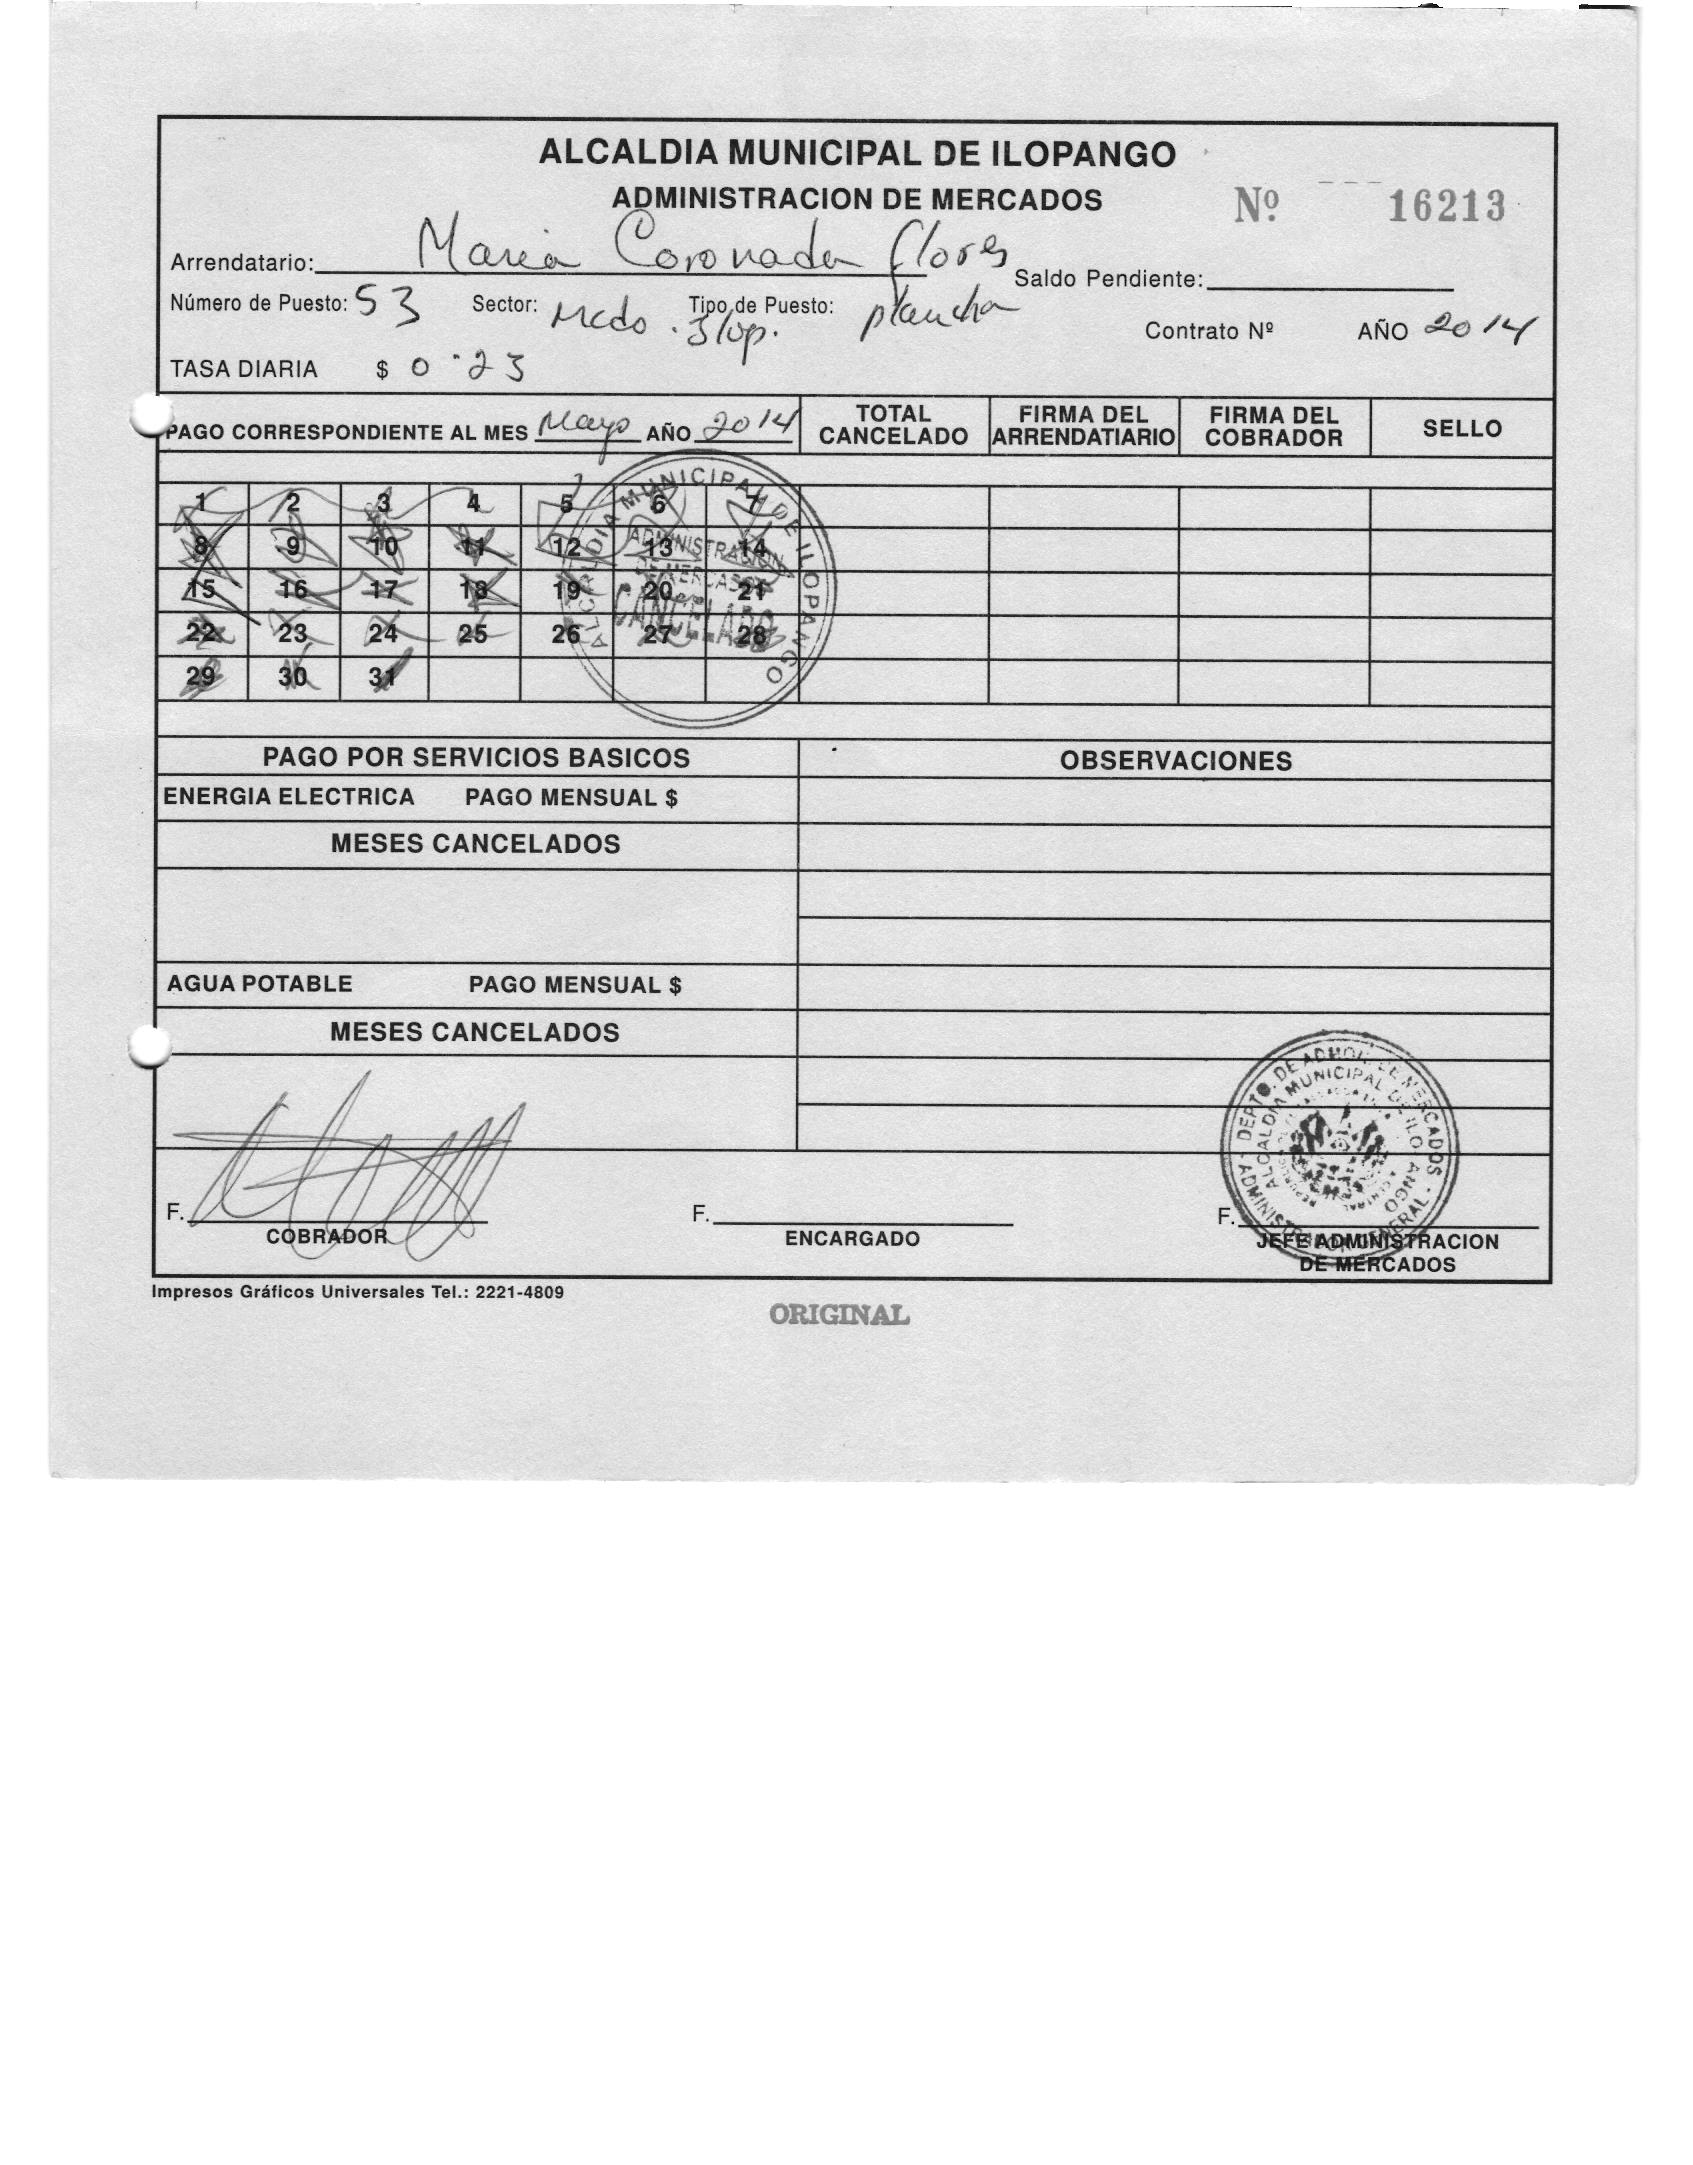 ALCALDIA MUNICIPAL DE ILOPANGO
ADMINISTRACION DE MERCADOS
Nº 16213
Arrendatario: Maria Coronada Flores Saldo Pendiente:
Número de Puesto: 53 Sector: Mcdo. Ilop. Tipo de Puesto: plancha
Contrato Nº AÑO 2014
TASA DIARIA $ 0.23
PAGO CORRESPONDIENTE AL MES Mayo AÑO 2014 TOTAL CANCELADO FIRMA DEL ARRENDATIARIO FIRMA DEL COBRADOR SELLO
1 2 3 4 5 6 7
8 9 10 11 12 13 14
15 16 17 18 19 20 21
22 23 24 25 26 27 28
29 30 31
ALCALDIA MUNICIPAL DE ILOPANGO
ADMINISTRACION
DE MERCADOS
CANCELADO
PAGO POR SERVICIOS BASICOS OBSERVACIONES
ENERGIA ELECTRICA PAGO MENSUAL $
MESES CANCELADOS
AGUA POTABLE PAGO MENSUAL $
MESES CANCELADOS
DEPTO. DE ADMON. DE MERCADOS
ALCALDIA MUNICIPAL DE ILOPANGO
ADMINISTRADOR GENERAL
F. F. F.
COBRADOR ENCARGADO JEFE ADMINISTRACION
DE MERCADOS
Impresos Gráficos Universales Tel.: 2221-4809
ORIGINAL